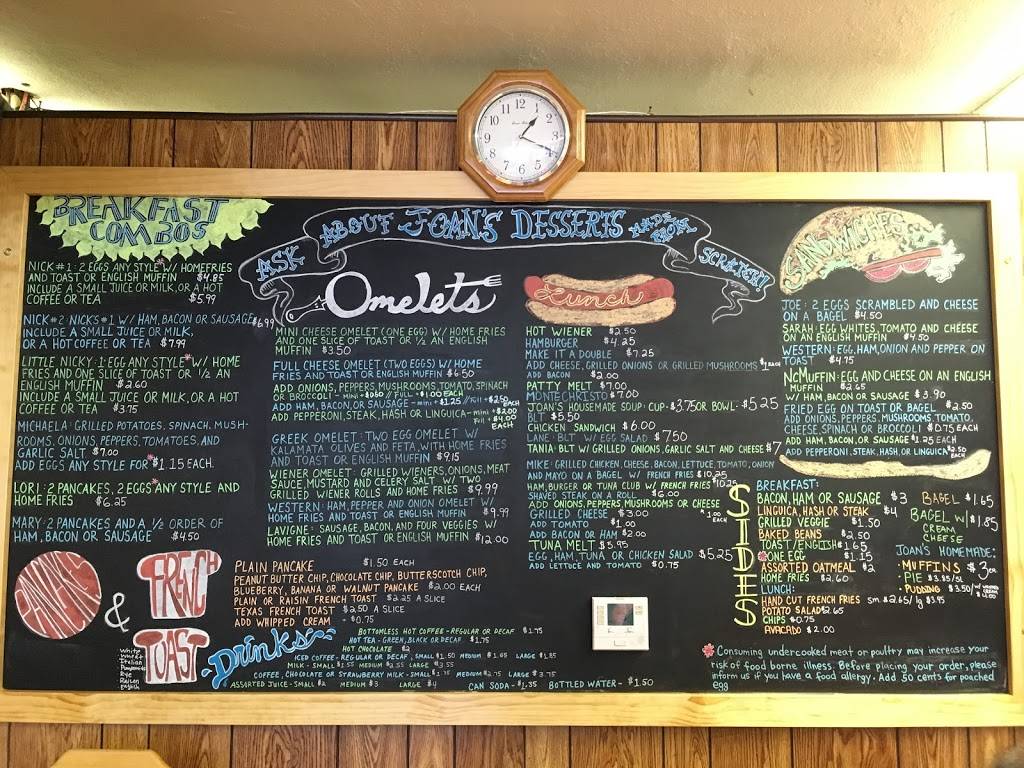 12
1
2
3
4
5
6
7
8
9
10
11
BREAKFAST
COMBOS
NICK #1: 2 EGGS ANY STYLE* W/ HOMEFRIES
AND TOAST OR ENGLISH MUFFIN $4.85
INCLUDE A SMALL JUICE OR MILK, OR A HOT
COFFEE OR TEA $5.99
NICK #2: NICKS #1 W/ HAM, BACON OR SAUSAGE $6.99
INCLUDE A SMALL JUICE OR MILK,
OR A HOT COFFEE OR TEA $7.99
LITTLE NICKY: 1 EGG ANY STYLE* W/ HOME
FRIES AND ONE SLICE OF TOAST OR 1/2 AN
ENGLISH MUFFIN $2.60
INCLUDE A SMALL JUICE OR MILK, OR A HOT
COFFEE OR TEA $3.75
MICHAELA: GRILLED POTATOES, SPINACH, MUSH-
ROOMS, ONIONS, PEPPERS, TOMATOES, AND
GARLIC SALT $7.00
ADD EGGS ANY STYLE FOR* $1.15 EACH
LORI: 2 PANCAKES, 2 EGGS* ANY STYLE AND
HOME FRIES $6.25
MARY: 2 PANCAKES AND A 1/2 ORDER OF
HAM, BACON OR SAUSAGE $4.50
ASK ABOUT JOAN'S DESSERTS MADE FROM SCRATCH!
Omelets
MINI CHEESE OMELET (ONE EGG) W/ HOME FRIES
AND ONE SLICE OF TOAST OR 1/2 AN ENGLISH
MUFFIN $3.50
FULL CHEESE OMELET (TWO EGGS) W/ HOME
FRIES AND TOAST OR ENGLISH MUFFIN $6.50
ADD ONIONS, PEPPERS, MUSHROOMS, TOMATO, SPINACH
OR BROCCOLI - MINI + $0.60 // FULL + $1.00 EACH
ADD HAM, BACON, OR SAUSAGE - mini + $1.25 // Full + $2.50 EACH
ADD PEPPERONI, STEAK, HASH OR LINGUICA - mini + $2.00
Full + $4.00 EACH
GREEK OMELET: TWO EGG OMELET W/
KALAMATA OLIVES AND FETA, WITH HOME FRIES
AND TOAST OR ENGLISH MUFFIN $9.15
WIENER OMELET: GRILLED WIENERS, ONIONS, MEAT
SAUCE, MUSTARD AND CELERY SALT W/ TWO
GRILLED WIENER ROLLS AND HOME FRIES $9.99
WESTERN: HAM, PEPPER AND ONION OMELET W/
HOME FRIES AND TOAST OR ENGLISH MUFFIN $9.99
LAVIGNE: SAUSAGE, BACON, AND FOUR VEGGIES W/
HOME FRIES AND TOAST OR ENGLISH MUFFIN $12.00
Lunch
HOT WIENER $2.50
HAMBURGER $4.25
MAKE IT A DOUBLE $7.25
ADD CHEESE, GRILLED ONIONS OR GRILLED MUSHROOMS $1 EACH
ADD BACON $2.00
PATTY MELT $7.00
MONTECHRISTO $7.00
JOAN'S HOUSEMADE SOUP: CUP - $3.75 OR BOWL: $5.25
BLT $5.50
CHICKEN SANDWICH $6.00
LANE: BLT W/ EGG SALAD $7.50
TANIA: BLT W/ GRILLED ONIONS, GARLIC SALT AND CHEESE $7
MIKE: GRILLED CHICKEN, CHEESE, BACON, LETTUCE, TOMATO, ONION
AND MAYO ON A BAGEL W/ FRENCH FRIES $10.25
HAM, BURGER OR TUNA CLUB W/ FRENCH FRIES $10.25
SHAVED STEAK ON A ROLL $6.00
ADD ONIONS, PEPPERS, MUSHROOMS OR CHEESE $1.00 EACH
GRILLED CHEESE $3.00
ADD TOMATO $1.00
ADD BACON OR HAM $2.00
TUNA MELT $5.95
EGG, HAM, TUNA OR CHICKEN SALAD $5.25
ADD LETTUCE AND TOMATO $0.75
SANDWICHES
JOE: 2 EGGS SCRAMBLED AND CHEESE
ON A BAGEL $4.50
SARAH: EGG WHITES, TOMATO AND CHEESE
ON AN ENGLISH MUFFIN $4.50
WESTERN: EGG, HAM, ONION AND PEPPER ON
TOAST $4.75
NCMUFFIN: EGG AND CHEESE ON AN ENGLISH
MUFFIN $2.65
W/ HAM, BACON OR SAUSAGE $3.90
FRIED EGG ON TOAST OR BAGEL $2.50
ADD ONIONS, PEPPERS, MUSHROOMS, TOMATO,
CHEESE, SPINACH OR BROCCOLI $0.75 EACH
ADD HAM, BACON, OR SAUSAGE $1.25 EACH
ADD PEPPERONI, STEAK, HASH, OR LINGUICA $2.50 EACH
SIDES
BREAKFAST:
BACON, HAM OR SAUSAGE $3
LINGUICA, HASH OR STEAK $4
GRILLED VEGGIE $1.50
BAKED BEANS $2.50
TOAST/ENGLISH $1.65
*ONE EGG $1.15
ASSORTED OATMEAL $2
HOME FRIES $2.60
LUNCH:
HAND CUT FRENCH FRIES sm $2.65/lg $3.95
POTATO SALAD $2.65
CHIPS $0.75
AVACADO $2.00
BAGEL $1.65
BAGEL W/ CREAM CHEESE $1.85
JOAN'S HOMEMADE:
- MUFFINS $3
- PIE $3.95/SL
- PUDDING $3.50/ W/ WHIPPED CREAM $4.00
PANCAKES
&
FRENCH
TOAST
White
Wheat
Italian
Pumpernickel
Rye
Raisin
English
PLAIN PANCAKE $1.50 EACH
PEANUT BUTTER CHIP, CHOCOLATE CHIP, BUTTERSCOTCH CHIP,
BLUEBERRY, BANANA OR WALNUT PANCAKE $2.00 EACH
PLAIN OR RAISIN FRENCH TOAST $2.25 A SLICE
TEXAS FRENCH TOAST $2.50 A SLICE
ADD WHIPPED CREAM - $0.75
Drinks
BOTTOMLESS HOT COFFEE - REGULAR OR DECAF $1.75
HOT TEA - GREEN, BLACK OR DECAF $1.75
HOT CHOCOLATE $2
ICED COFFEE - REGULAR OR DECAF, SMALL $1.50 MEDIUM $1.65 LARGE $1.85
MILK - SMALL $1.55 MEDIUM $2.55 LARGE $3.55
COFFEE, CHOCOLATE OR STRAWBERRY MILK - SMALL $1.75 MEDIUM $2.75 LARGE $3.75
ASSORTED JUICE - SMALL $2 MEDIUM $3 LARGE $4 CAN SODA - $1.35 BOTTLED WATER - $1.50
* Consuming undercooked meat or poultry may increase your
risk of food borne illness. Before placing your order, please
inform us if you have a food allergy. Add 50 cents for poached
egg